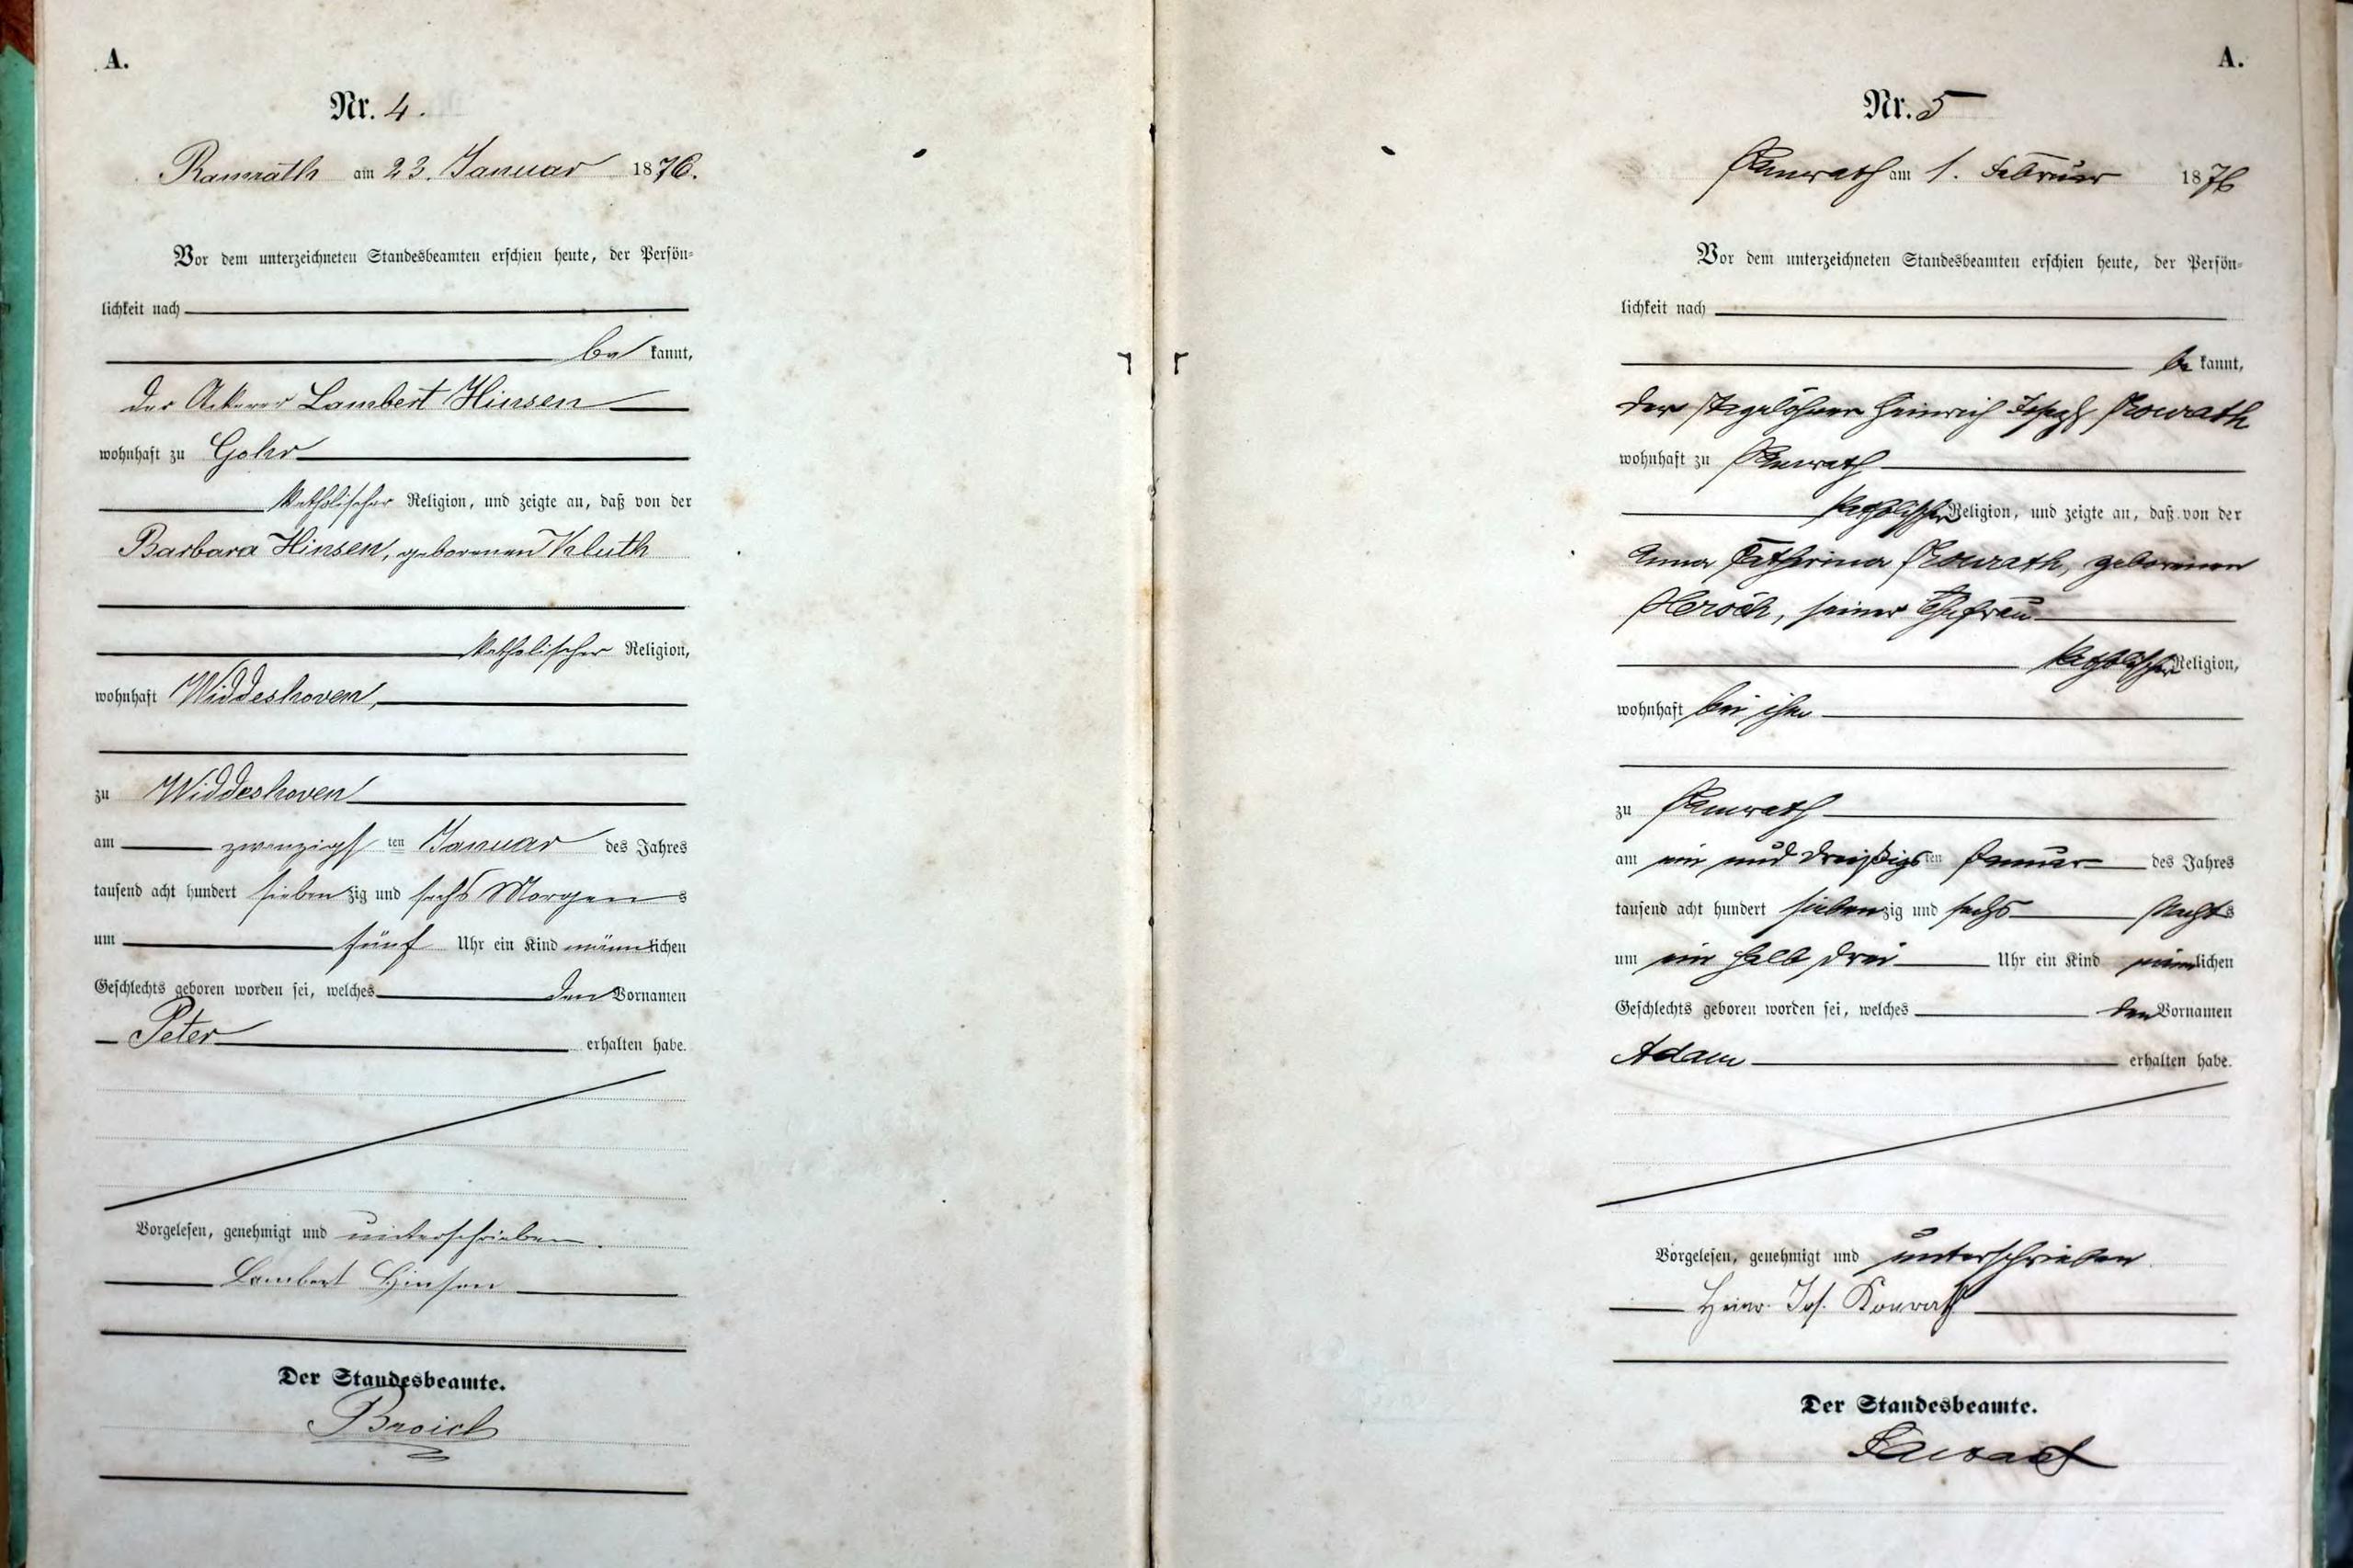 A.
Nr. 4.
Ramrath am 23. Januar 1876.
Vor dem unterzeichneten Standesbeamten erschien heute, der Persön-
lichkeit nach
be kannt,
der Ackerer Lambert Hinsen
wohnhaft zu Gohr
katholischer Religion, und zeigte an, daß von der
Barbara Hinsen, geborenen Kluth
katholischer Religion,
wohnhaft Widdeshoven,
zu Widdeshoven
am zwanzigsten Januar des Jahres
tausend acht hundert siebenzig und sechs Morgens
um fünf Uhr ein Kind männlichen
Geschlechts geboren worden sei, welches den Vornamen
Peter erhalten habe.
Vorgelesen, genehmigt und unterschrieben.
Lambert Hinsen
Der Standesbeamte.
Broich
A.
Nr. 5
Ramrath am 1. Februar 1876
Vor dem unterzeichneten Standesbeamten erschien heute, der Persön-
lichkeit nach
be kannt,
der Tagelöhner Heinrich Joseph Konrath
wohnhaft zu Ramrath
katholischer Religion, und zeigte an, daß von der
Anna Catharina Konrath, geborenen
seiner Ehefrau
katholischer Religion,
wohnhaft bei ihm
zu Ramrath
am ein und dreißigsten Januar des Jahres
tausend acht hundert siebenzig und sechs Nachts
um ein halb drei Uhr ein Kind männlichen
Geschlechts geboren worden sei, welches den Vornamen
Adam erhalten habe.
Vorgelesen, genehmigt und unterschrieben.
Heinr. Jos. Konrath
Der Standesbeamte.